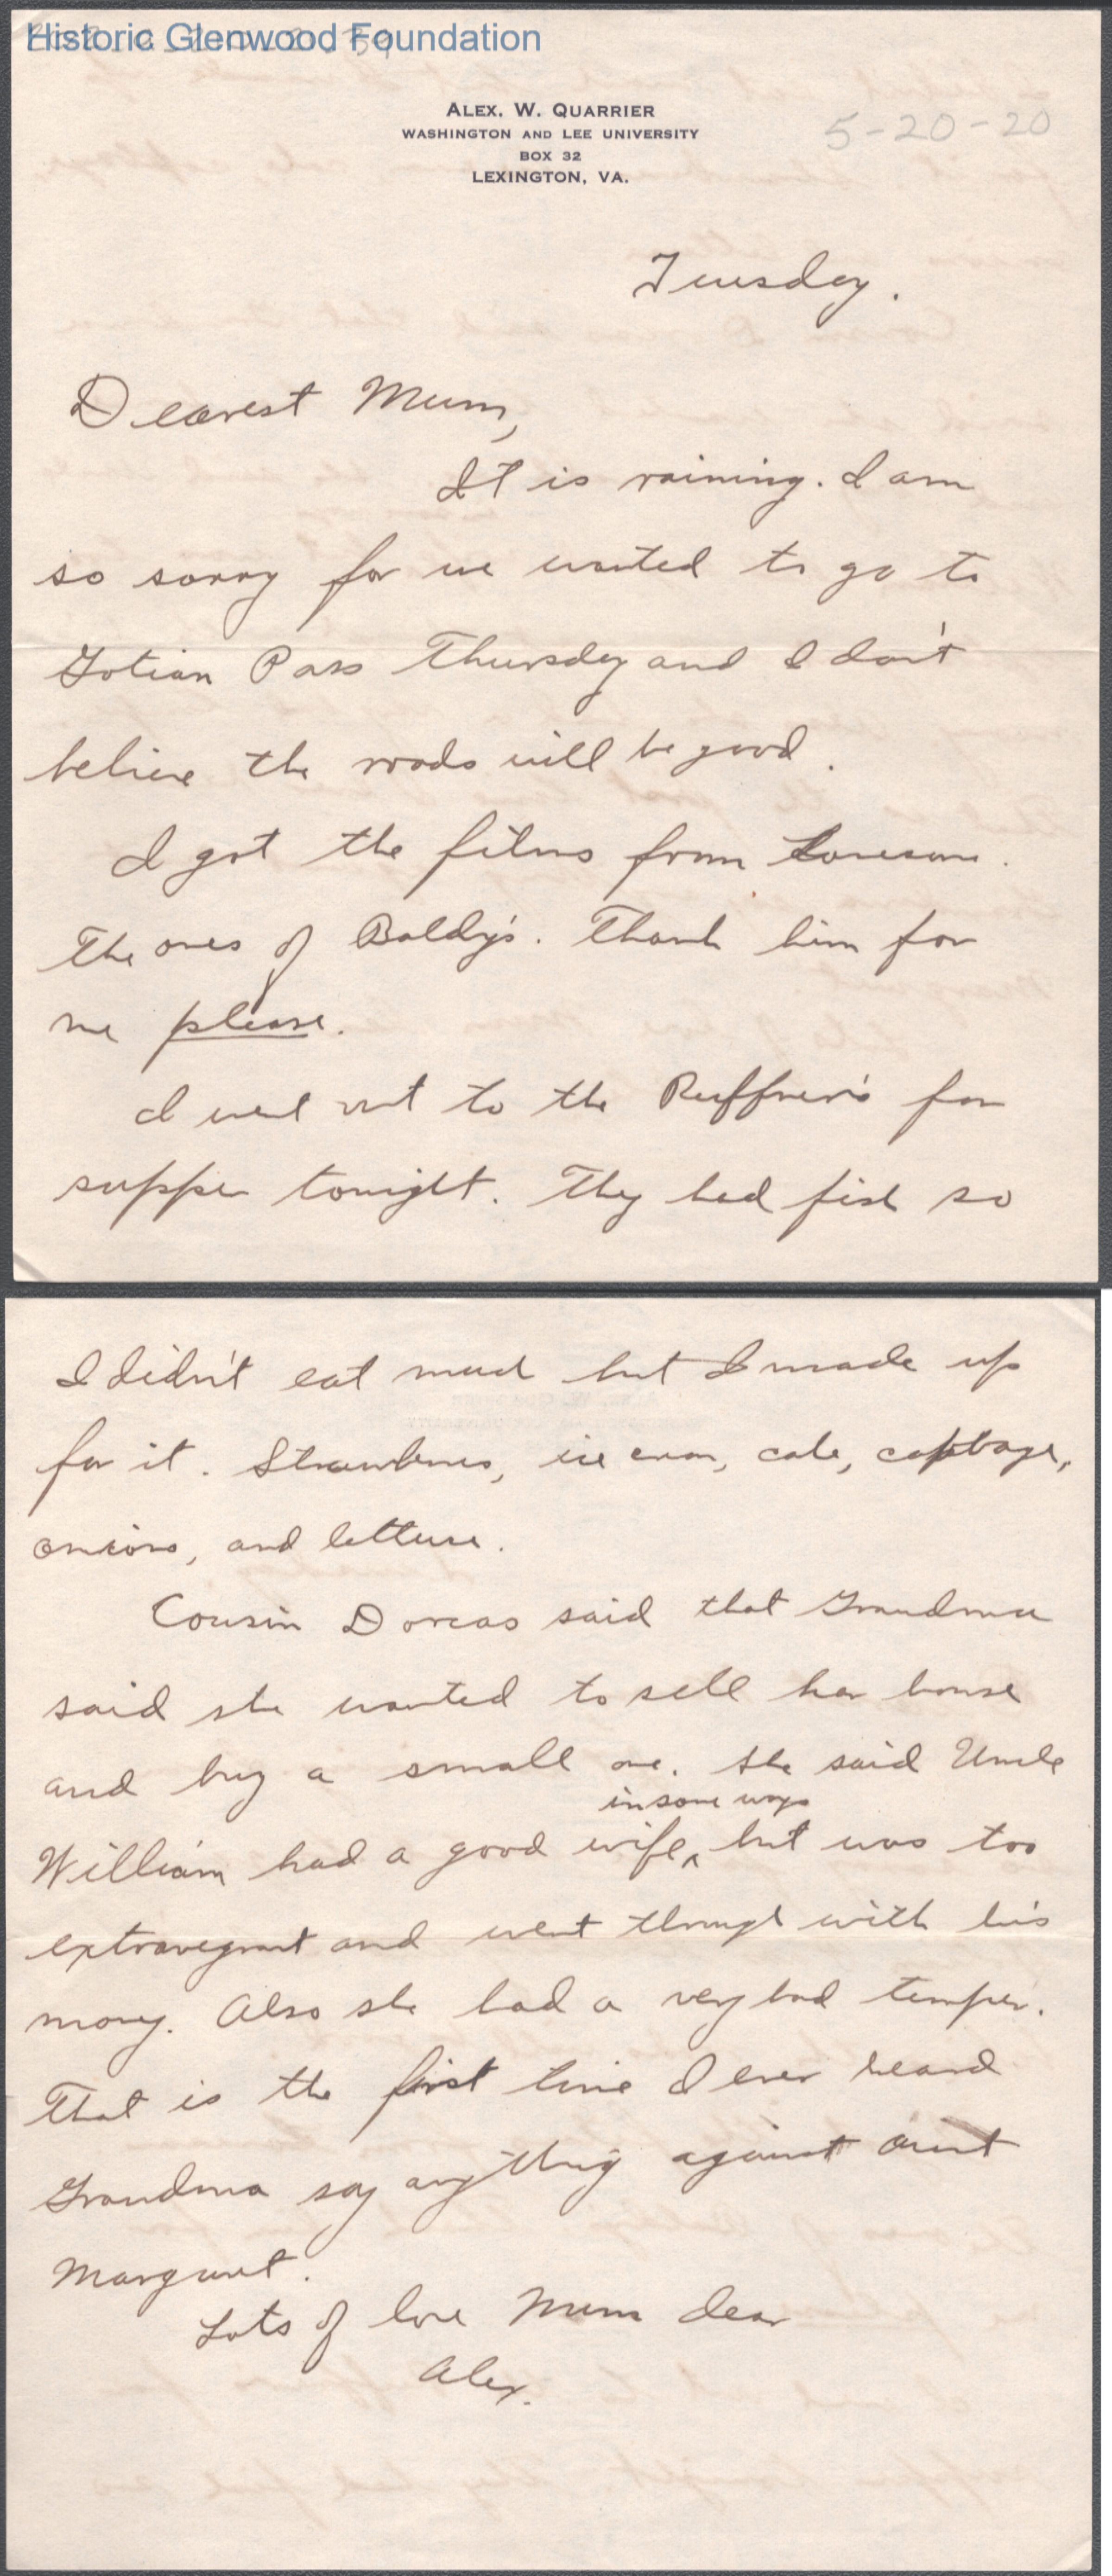 Historic Glenwood Foundation
ALEX. W. QUARRIER
WASHINGTON AND LEE UNIVERSITY
BOX 32
LEXINGTON, VA.
5-20-20
Tuesday.
Dearest Mum,
It is raining. I am
so sorry for we wanted to go to
Pass Thursday and I don't
believe the roads will be good.
I got the films from
The ones of Baldy's. Thank him for
me please.
I went out to the Ruffner's for
supper tonight. They had fish so
I didn't eat much but I made up
for it. Strawberries, ice cream, cake, cabbage,
onions, and lettuce.
Cousin Dorcas said that Grandma
said she wanted to sell her house
and buy a small one. She said Uncle
in some ways
William had a good wife, but was too
extravegant and went through with his
money. Also she had a very bad temper.
That is the first time I ever heard
Grandma say anything against Aunt
Margaret.
Lots of love Mum dear
Alex.